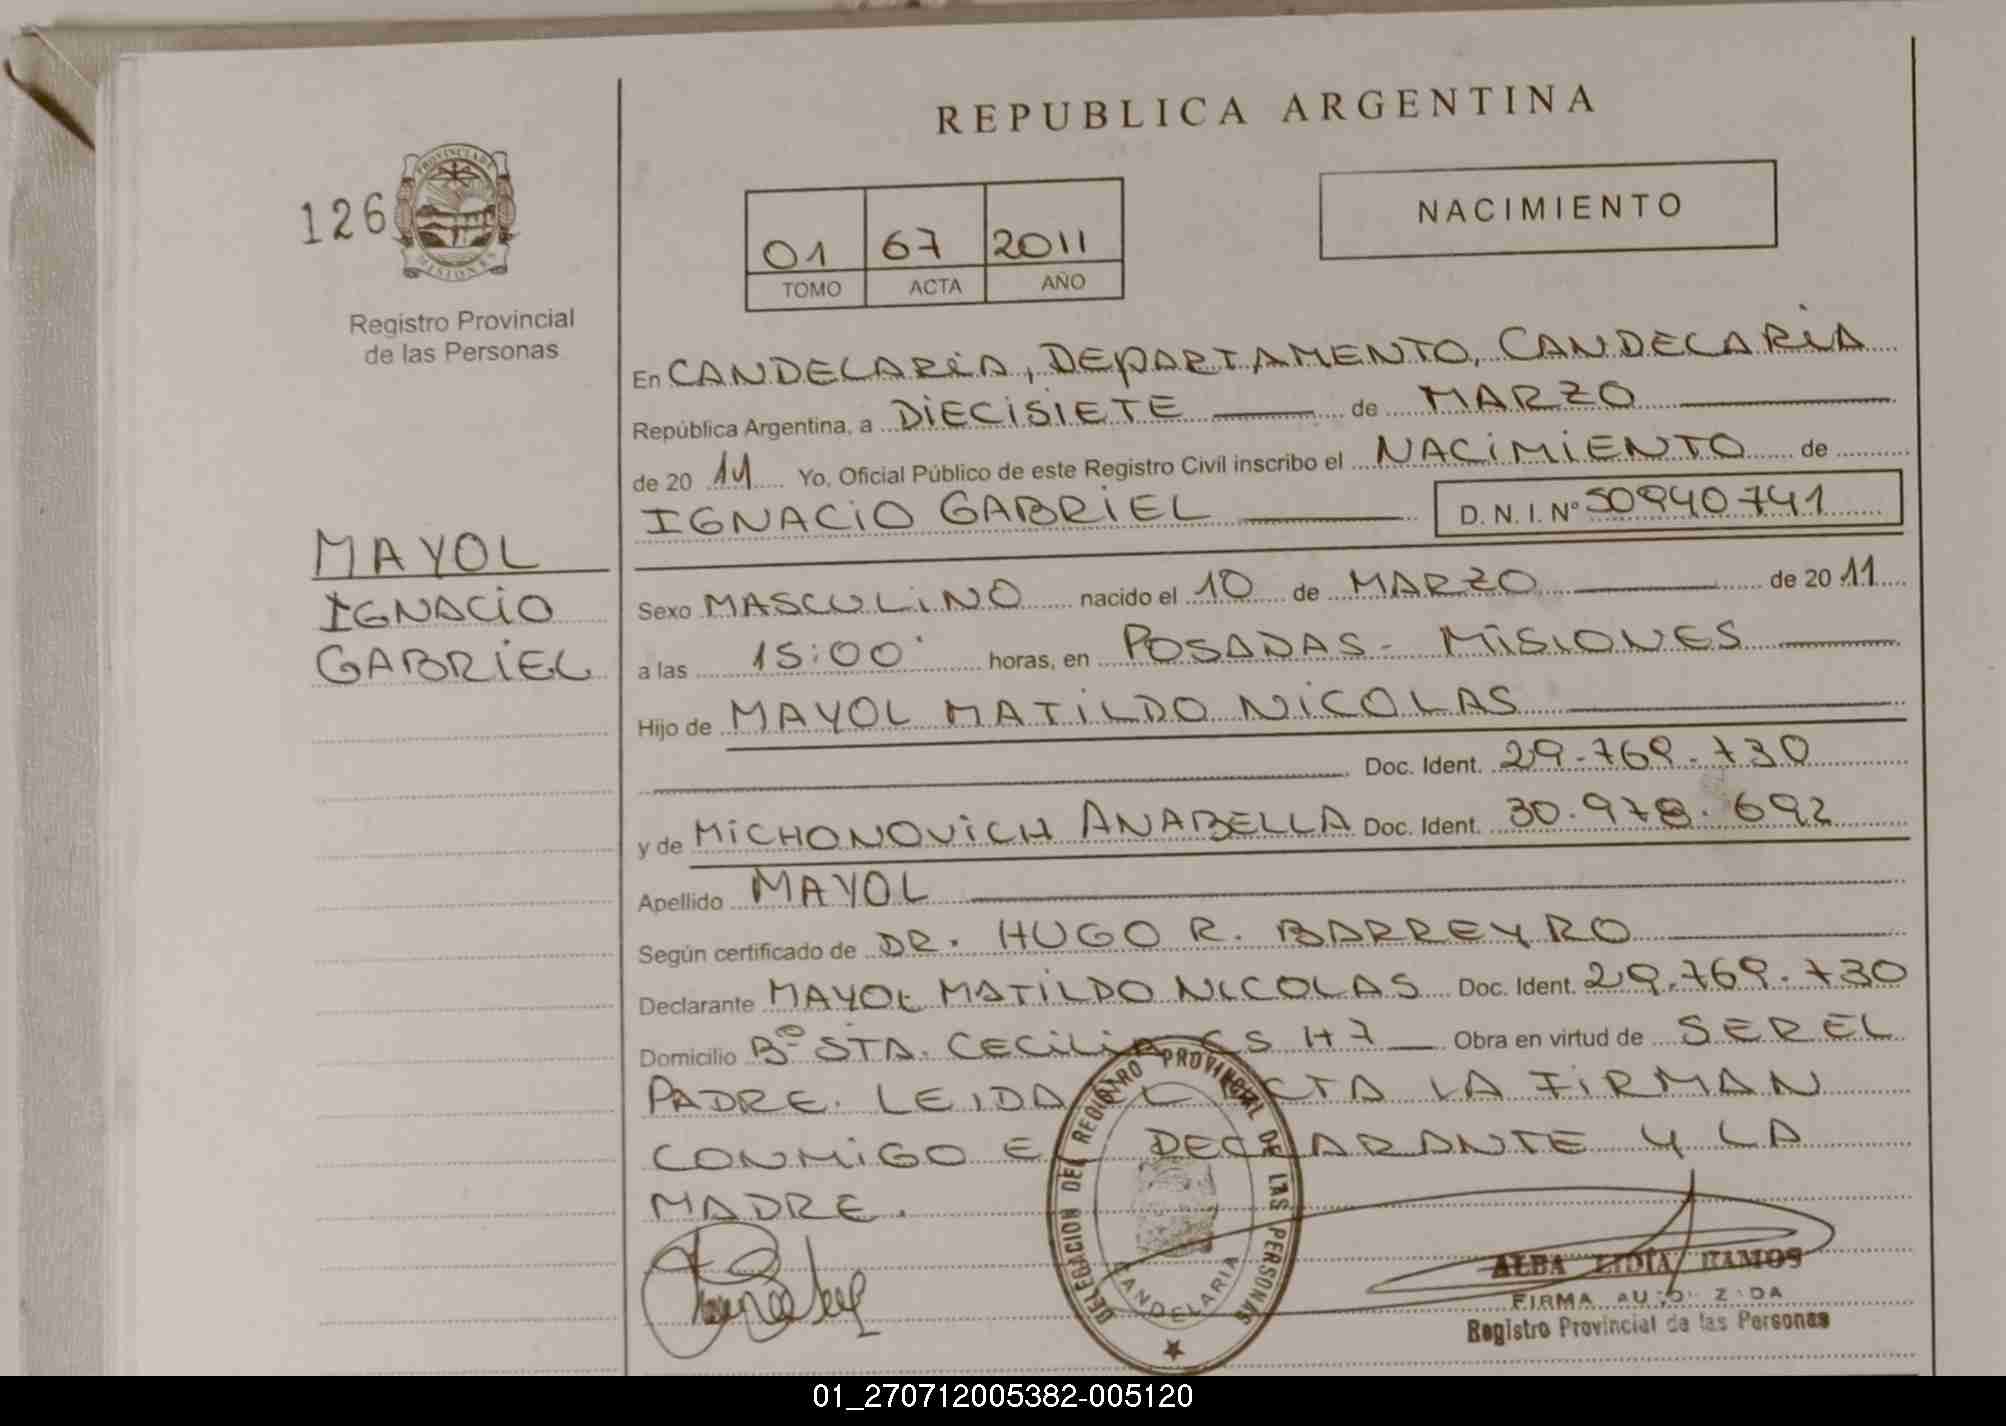 REPUBLICA ARGENTINA
126
PROVINCIA DE
MISIONES
Registro Provincial
de las Personas
01 67 2011
TOMO ACTA AÑO
NACIMIENTO
En CANDELARIA, DEPARTAMENTO, CANDELARIA
República Argentina, a DIECISIETE de MARZO
de 2011 Yo, Oficial Público de este Registro Civil inscribo el NACIMIENTO de
IGNACIO GABRIEL D.N.I. Nº 50940741
MAYOL
IGNACIO
GABRIEL
Sexo MASCULINO nacido el 10 de MARZO de 2011
a las 15:00 horas, en POSADAS - MISIONES
Hijo de MAYOL MATILDO NICOLAS
Doc. Ident. 29.769.730
y de MICHONOVICH ANABELLA Doc. Ident. 30.978.692
Apellido MAYOL
Según certificado de DR. HUGO R. BARREYRO
Declarante MAYOL MATILDO NICOLAS Doc. Ident. 29.769.730
Domicilio Bº STA. CECILIA CS H7 Obra en virtud de SER EL
PADRE. LEIDA EL ACTA LA FIRMAN
CONMIGO EL DECLARANTE Y LA
MADRE.
DELEGACION DEL REGISTRO PROVINCIAL DE LAS PERSONAS
CANDELARIA
ALBA LIDIA RAMOS
FIRMA AUTORIZADA
Registro Provincial de las Personas
01_270712005382-005120